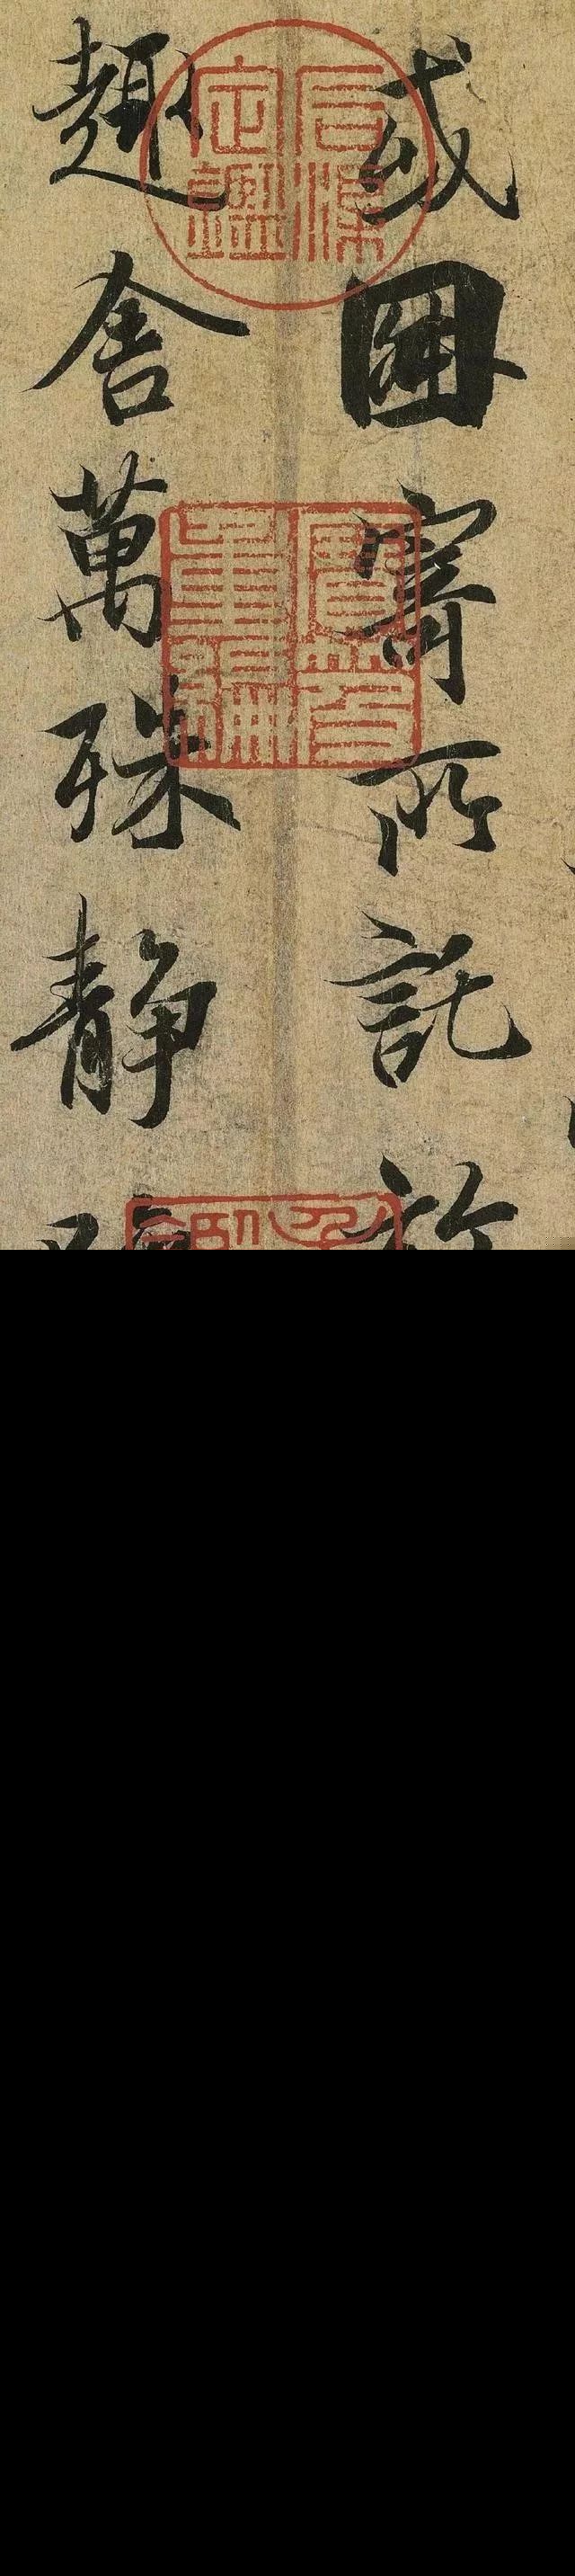 或因寄所託
趣舍萬殊静
石渠定鑑
寶笈重編